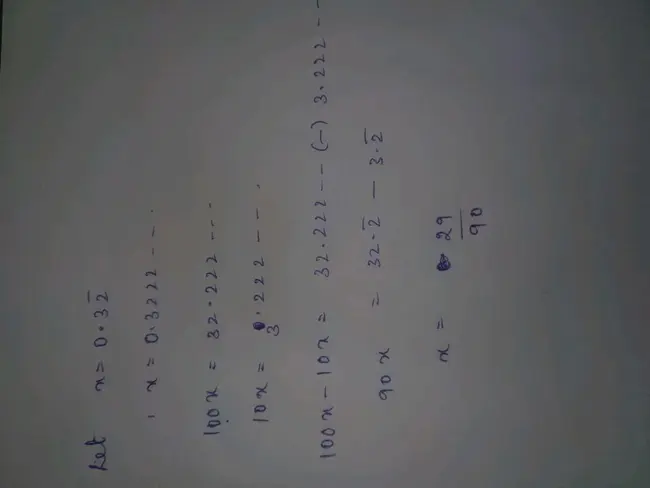 Let x = 0.32̅
x = 0.3222 - - - .
100x = 32.222 - - - .
10x = 3.222 - - - .
100x - 10x = 32.222 - - - (-) 3.222 - -
90x = 32.2̅ - 3.2̅
x = 29/90